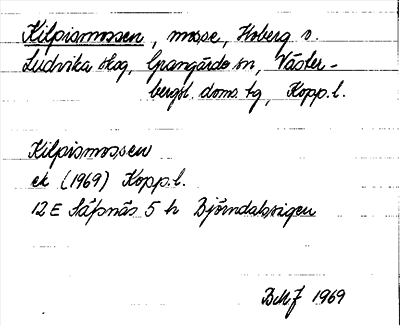 Kilpismossen, mosse, Hoberg v.
Ludvika skog, Grangärde sn, Väster-
bergsl. doms. tg, Kopp. l.
Kilpismossen
ek (1969) Kopp. l.
12 E Säfsnäs 5 h Björndalsvigen
1969